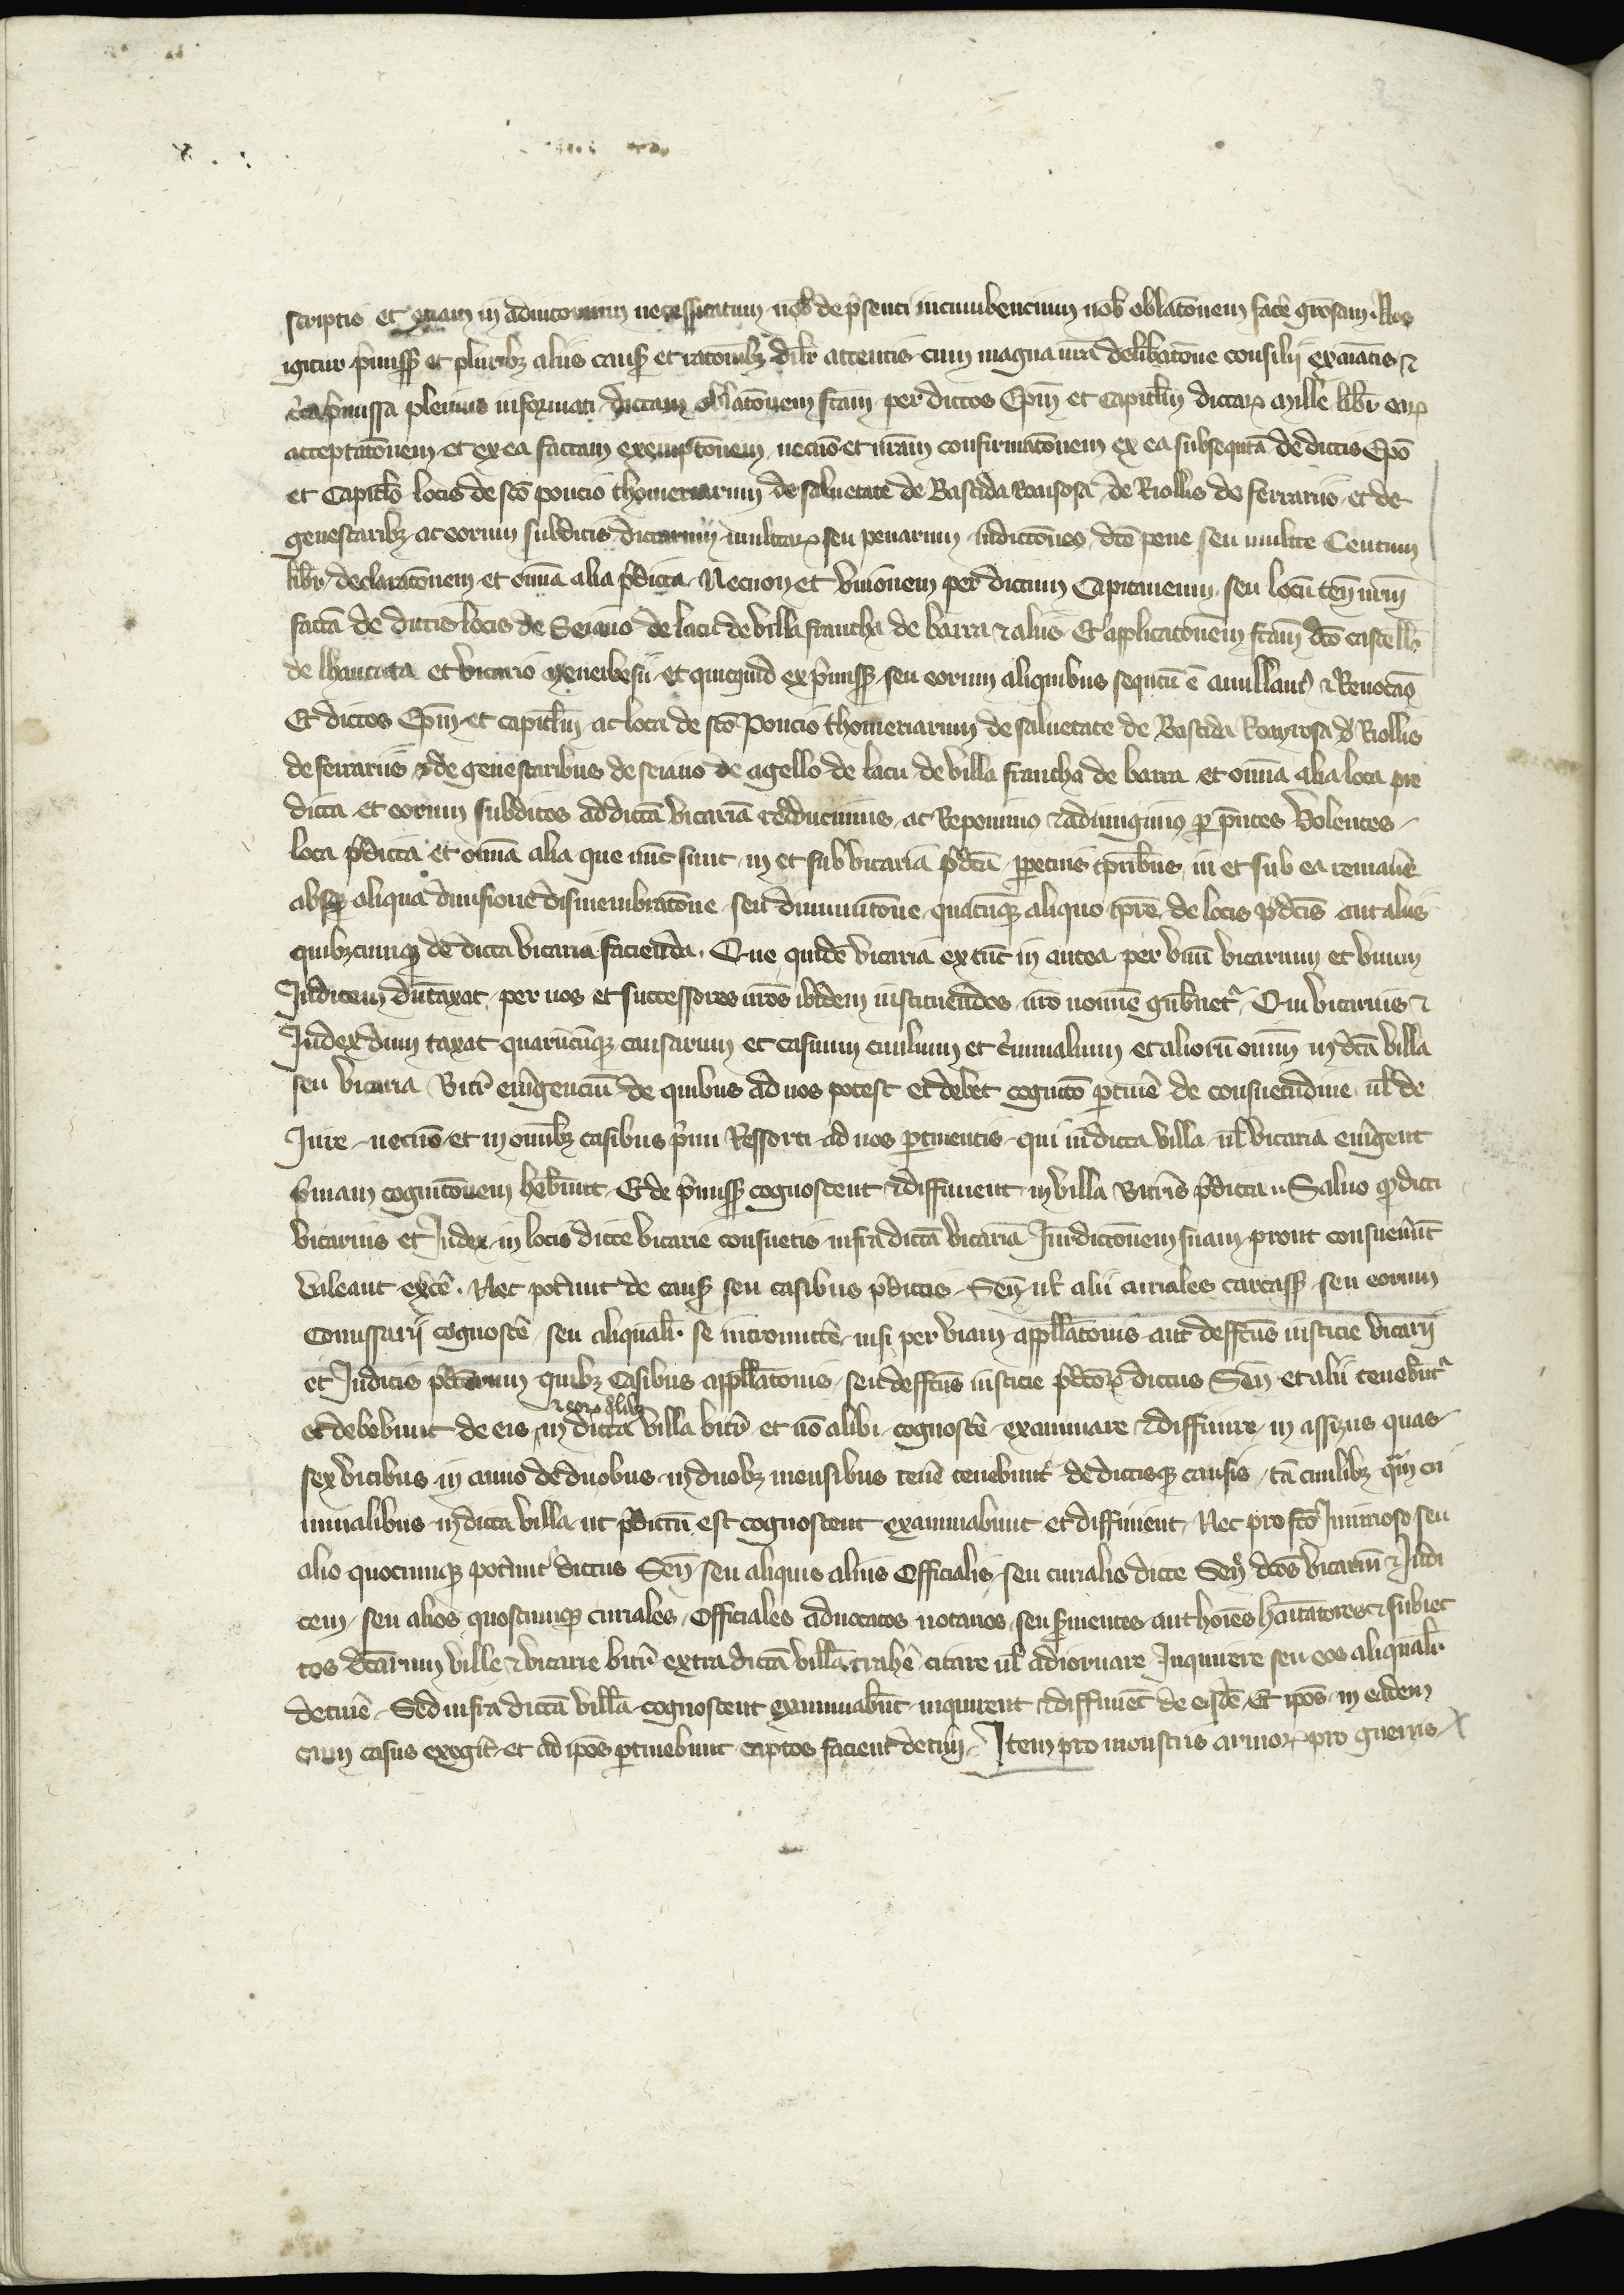 scriptis et etiam in adiutorium necessitatum nob̄ de p̄senti incumbencium nob̄ oblatōnem facē gr̄osam. Nos
igitur p̄miss et pluribꝫ aliis caus et ratōnibꝫ attentis cum magna nr̄a delib̄atōne consilii examīatis ⁊
c̄ca p̄missa plenius informati dictam oblatōnem fc̄am per dictos Ep̄m et Capitl̄m dictaꝝ mille libr̄ eaꝝ
acceptatōnem et ex ea factam exemptōnem necnō et nr̄am confirmatōnem ex ea subsequtā de dictis Ep̄o
et Capitl̄o locis de sc̄o poncio thomeriarum de saluetate de Bastida Rouyrosa de Riollis de ferrariis et de
genestaribꝫ ac eorum subditis dictarum multaꝝ seu penarum indictōnes dc̄e pene seu multe Centum
libr̄ declaratōnem et om̄ia alia p̄dicta Necnon et Vnionem per dictum Capitaneum seu locū ten̄ nr̄m
factā de dictis locis de Seiano de lacu de Villa francha de barra ⁊ aliis Et applicatōnem fc̄am dc̄o castell̄
de lhaucata et Vicario et quicquid ex p̄miss seu eorum aliquibus sequtū ē anullantꝰ ⁊ Reuocātꝰ
Et dictos Ep̄m et capitl̄m ac loca de sc̄o Poncio thomeriarum de saluetate de Bastida Rouyrosa de Riollis
de ferrariis ⁊ de genestaribus de seiano de agello de lacu de Villa francha de barra et om̄ia alia loca pre
dicta et eorum subditos ad dictā vicariā reducimus ac Reponimꝰ ⁊ adiungimꝰ ꝑ p̄ntes Volentes
loca p̄dicta et om̄ia alia que nūc sunt in et sub vicaria p̄dc̄a ꝑpetuis tp̄ribus in et sub ea remanē
absqꝫ aliqua diuisione dismembratōne seu diminutōne quacūqꝫ aliquo tp̄re de locis p̄dc̄is aut aliis
quibꝫcumqꝫ de dicta vicaria facienda. Que quidē vicaria ex tūc in antea per vnū vicarium et vnum
Iudicem dūtaxat per nos et successores nr̄os ibidem instituendos nr̄o nomīe gub̄netᷣ Qui vicarius ⁊
Iudex dum taxat quarūcūqꝫ causarum et casuum ciuilium et c̄minalium et aliorū om̄m in dc̄a villa
seu vicaria Bitr̄ em̄gencium de quibus ad nos potest et debet cognitō ꝑtinē de consuetudine ul̄ de
Iure necnō et in om̄ibꝫ casibus p̄mi Ressorti ad nos ꝑtinentis qui in dicta villa ul̄ vicaria em̄gent
p̄mam cognitōnem heb̄unt Et de p̄miss cognoscent ⁊ diffinient in villa Bitr̄is p̄dicta Saluo ꝙ dicti
vicarius et Iudex in locis dicte vicarie consuetis infra dictā vicariā Iur̄dictōnem suam prout consueuer̄ūt
valeant exc̄cē. Nec pot̄unt de caus seu casibus p̄dictis Sen̄ ul̄ alii curiales carcass seu eorum
Comissarii cognoscē seu aliqual̄r se intromittē nisi per viam appellatōnis aut deffctꝰ iusticie vicarii
et Iudicis p̄dc̄orum quibꝫ Casibus appellatōnis seu deffctꝰ iusticie p̄dc̄oꝝ dictus Sen̄ et alii tenebūtᷣ
⁊ eoꝝ q̄libꝫ
et debebunt de eis in dicta villa bitr̄ et nō alibi cognoscē examinare ⁊ diffinire in assizis quas
sex vicibus in anno de duobus in duobꝫ mensibus tenē tenebunt̄ de dictisqꝫ causis tā ciuilibꝫ q̄m cri
minalibus in dicta villa ut p̄dictū est cognoscent examinabunt et diffinient Nec pro fc̄o Iniurioso seu
alio quocumqꝫ pot̄unt dictus Sen̄ seu aliquis alius Officialis seu curialis dicte Sen̄ dc̄os vicariū ⁊ Iudi
cem seu alios quoscumqꝫ curiales Officiales aduocatos notarios seu s̄uientes aut hoīes habitatores ⁊ subiec
tos dc̄arum ville ⁊ vicarie bitr̄ extra dictā villā trahē citare ul̄ adiornare Inquirere seu eos aliqual̄r
detinē Sed infra dictā villā cognoscent examinab̄ūt inquirent ⁊ diffiniēt de eisdē Et ip̄os in eadem
cum casus exeḡit et ad ip̄os ꝑtinebunt captos facient detin̄i Item pro monstris armoꝝ pro guerris